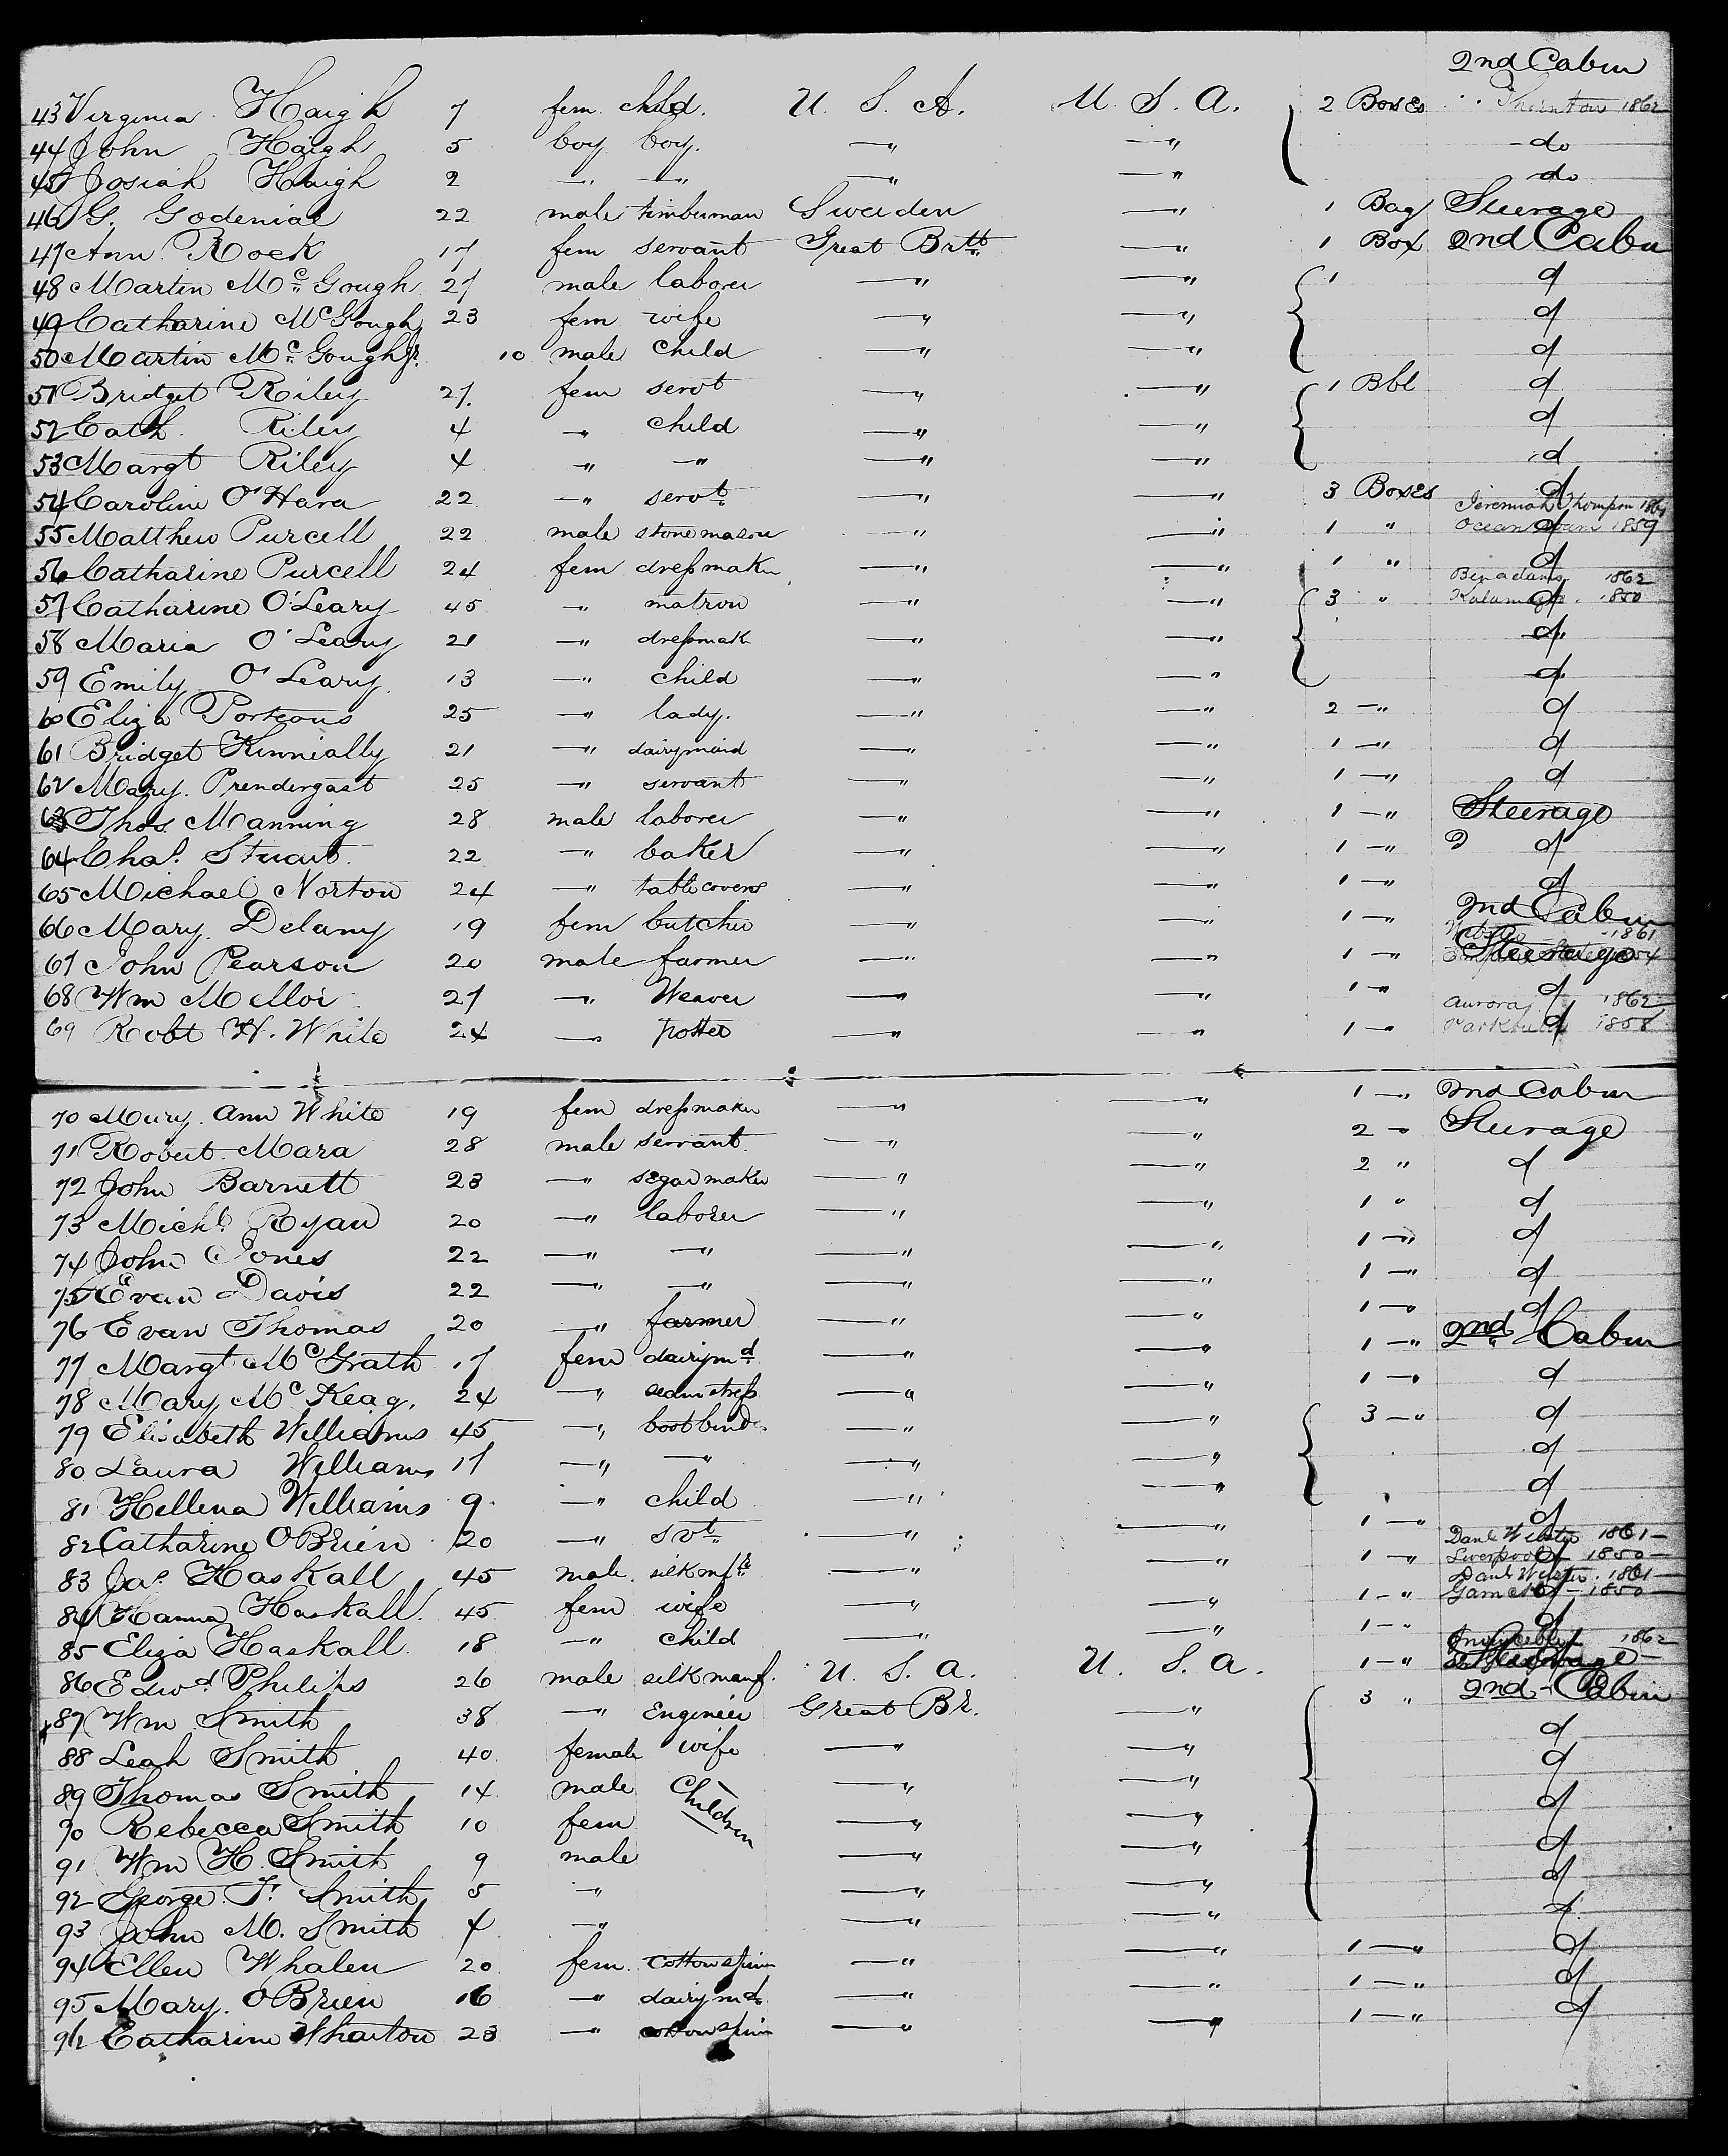 2nd Cabin
43 Virginia Haigh 7 fem child. U. S. A. U. S. A. 2 Boxes Thornton 1862
44 John Haigh 5 boy boy. —" —" do
45 Josiah Haigh 2 —" —" —" —" do
46 G. 22 male timberman Sweeden —" 1 Bag Steerage
47 Ann Rock 17 fem servant Great Britt. —" 1 Box 2nd Cabin
48 Martin Mc Gough 27 male laborer —" —" 1 d
49 Catharine McGough 23 fem wife —" —" d
50 Martin Mc Gough Jr. 10 male child —" —" d
51 Bridget Riley 27. fem servt —" —" 1 Bbl d
52 Cath. Riley 4 —" child —" —" d
53 Margt Riley 4 —" —" —" —" d
54 Caroline O'Hara 22 —" servt. —" —" 3 Boxes d
Jeremiah Thompson 1861
55 Matthew Purcell 22 male stone mason —" —" 1 " Ocean 1859 d
56 Catharine Purcell 24 fem dressmaker —" —" 1 " d
Benadams 1862
57 Catharine O'Leary 45 —" matron —" —" 3 " 1850 d
58 Maria O'Leary 21 —" dressmak —" —" d
59 Emily O'Leary 13 —" child —" —" d
60 Eliza Porteous 25 —" lady. —" —" 2 —" d
61 Bridget Kinnially 21 —" dairymaid —" —" 1 —" d
62 Mary Prendergast 25 —" servant —" —" 1 —" d
63 Thos. Manning 28 male laborer —" —" 1 —" Steerage
64 Chas. Stuart 22 —" baker —" —" 1 —" d
65 Michael Norton 24 —" table covers —" —" 1 —" d
66 Mary Delany 19 fem butcher —" —" 1 —" 2nd Cabin
1861
67 John Pearson 20 male farmer —" —" 1 —" Steerage
68 Wm Melloi 27 —" Weaver —" —" 1 —" d
Aurora 1862
69 Robt H. White 24 —" potter —" —" 1 —" 1858 d
70 Mary Ann White 19 fem dressmaker —" —" 1 —" 2nd Cabin
71 Robert Mara 28 male servant. —" —" 2 —" Steerage
72 John Barnett 23 —" segar maker —" —" 2 " d
73 Michl. Ryan 20 —" laborer —" —" 1 " d
74 John Jones 22 —" —" —" —" 1 —" d
75 Evan Davis 22 —" —" —" —" 1 —" d
76 Evan Thomas 20 —" farmer —" —" 1 —" d
77 Margt McGrath 17 fem dairymd —" —" 1 —" 2nd Cabin
78 Mary Mc Keag. 24 —" seamstress —" —" 1 —" d
79 Elisabeth Williams 45 —" bootbind. —" —" 3 —" d
80 Laura Williams 17 —" —" —" —" d
81 Hellena Williams 9 —" child —" —" d
82 Catharine OBrien 20 —" svt. —" —" 1 —" d
Danl Webster 1861 —
83 Jas. Haskall 45 male silkmfr —" —" 1 —" Liverpool 1850 — d
Danl Webster 1861 —
84 Hanna Haskall 45 fem wife —" —" 1 —" Garrick 1850 d
85 Eliza Haskall 18 —" child —" —" 1 —" d
Invincible 1862
86 Edwd Philips 26 male silk manf. U. S. A. U. S. A. 1 —" Steerage
87 Wm Smith 38 —" Engineer Great Br. —" 3 " 2nd Cabin
88 Leah Smith 40 female wife —" —" d
89 Thomas Smith 14 male Children —" —" d
90 Rebecca Smith 10 fem —" —" d
91 Wm H. Smith 9 male —" —" d
92 George T. Smith 5 —" —" —" d
93 John M. Smith 4 —" —" —" d
94 Ellen Whalen 20 fem. cotton spinn —" —" 1 —" d
95 Mary OBrien 16 —" dairymd. —" —" 1 —" d
96 Catharine Wharton 23 —" cotton spinn —" —" 1 —" d